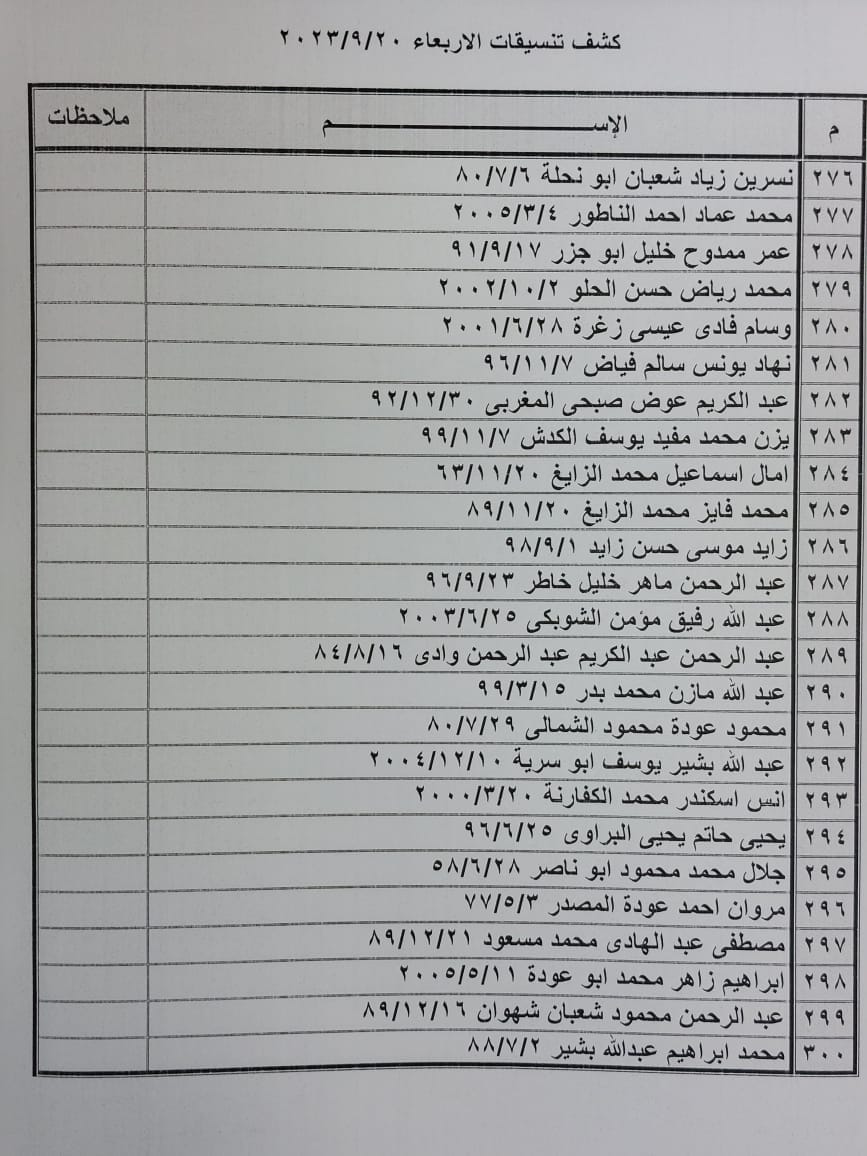 كشف تنسيقات الاربعاء ٢٠٢٣/٩/٢٠
م الإســـــــــم ملاحظات
٢٧٦ نسرين زياد شعبان ابو نحلة ٨٠/٧/٦
٢٧٧ محمد عماد احمد الناطور ٢٠٠٥/٣/٤
٢٧٨ عمر ممدوح خليل ابو جزر ٩١/٩/١٧
٢٧٩ محمد رياض حسن الحلو ٢٠٠٢/١٠/٢
٢٨٠ وسام فادى عيسى زغرة ٢٠٠١/٦/٢٨
٢٨١ نهاد يونس سالم فياض ٩٦/١١/٧
٢٨٢ عبد الكريم عوض صبحى المغربى ٩٢/١٢/٣٠
٢٨٣ يزن محمد مفيد يوسف الكدش ٩٩/١١/٧
٢٨٤ امال اسماعيل محمد الزايغ ٦٣/١١/٢٠
٢٨٥ محمد فايز محمد الزايغ ٨٩/١١/٢٠
٢٨٦ زايد موسى حسن زايد ٩٨/٩/١
٢٨٧ عبد الرحمن ماهر خليل خاطر ٩٦/٩/٢٣
٢٨٨ عبد الله رفيق مؤمن الشوبكى ٢٠٠٣/٦/٢٥
٢٨٩ عبد الرحمن عبد الكريم عبد الرحمن وادى ٨٤/٨/١٦
٢٩٠ عبد الله مازن محمد بدر ٩٩/٣/١٥
٢٩١ محمود عودة محمود الشمالى ٨٠/٧/٢٩
٢٩٢ عبد الله بشير يوسف ابو سرية ٢٠٠٤/١٢/١٠
٢٩٣ انس اسكندر محمد الكفارنة ٢٠٠٠/٣/٢٠
٢٩٤ يحيى حاتم يحيى البراوى ٩٦/٦/٢٥
٢٩٥ جلال محمد محمود ابو ناصر ٥٨/٦/٢٨
٢٩٦ مروان احمد عودة المصدر ٧٧/٥/٣
٢٩٧ مصطفى عبد الهادى محمد مسعود ٨٩/١٢/٢١
٢٩٨ ابراهيم زاهر محمد ابو عودة ٢٠٠٥/٥/١١
٢٩٩ عبد الرحمن محمود شعبان شهوان ٨٩/١٢/١٦
٣٠٠ محمد ابراهيم عبدالله بشير ٨٨/٧/٢